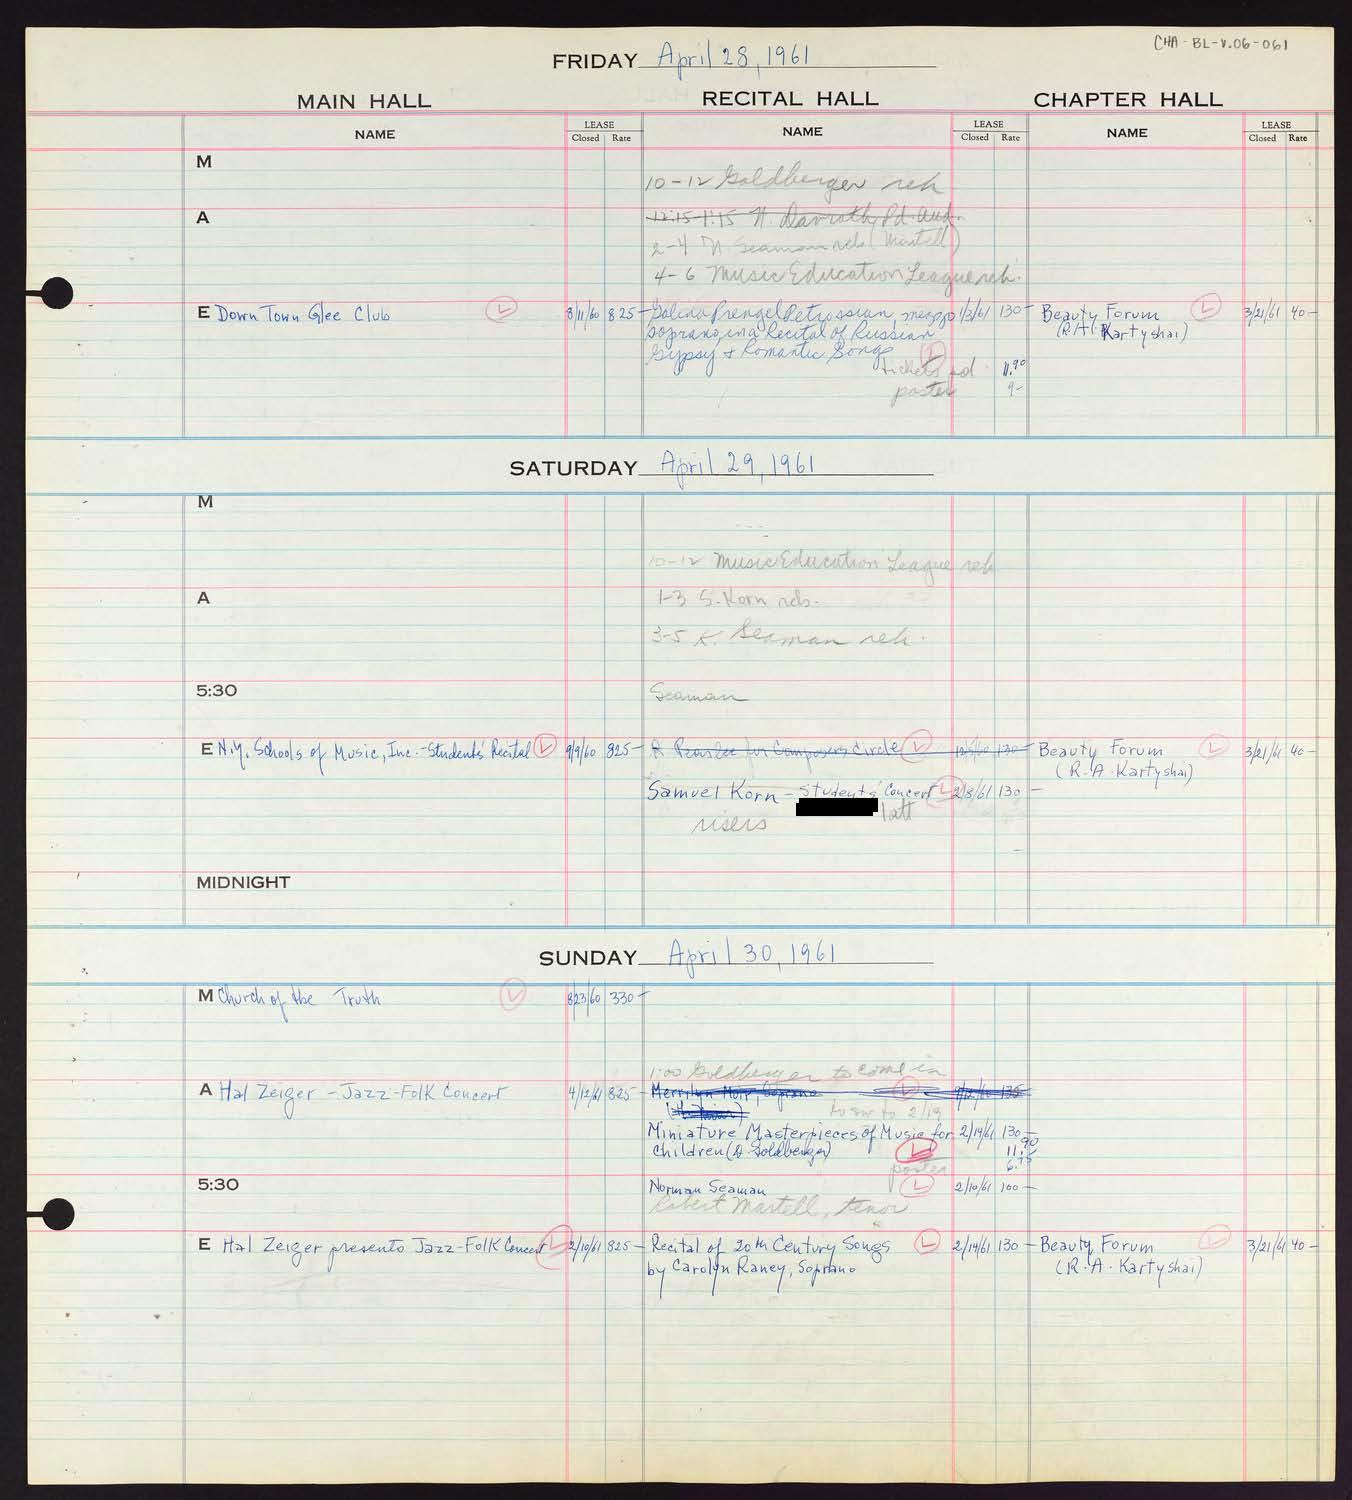 CHA-BL-V.06-061
FRIDAY April 28, 1961
MAIN HALL RECITAL HALL CHAPTER HALL
NAME LEASE Closed Rate NAME LEASE Closed Rate NAME LEASE Closed Rate
M
10-12 Goldberger reh
A 12:15-1:15 N. Davrath Pd. Aud.
2-4 N. Seaman reh (Martell)
4-6 Music Education League reh.
E Down Town Glee Club L 8/11/60 825- Galina Prengel Petrossian, mezzo 1/3/61 130- Beauty Forum L 3/21/61 40-
soprano, in a Recital of Russian (R.A. Kartyshai)
Gypsy & Romantic Songs L
tickets pd 11.90
poster 9-
SATURDAY April 29, 1961
M
10-12 Music Education League reh
A 1-3 S. Korn reh.
3-5 K. Seaman reh.
5:30 Seaman
E N.Y. Schools of Music, Inc.-Students' Recital L 9/9/60 825- for Composers Circle L 130- Beauty Forum L 3/21/61 40-
(R.A. Kartyshai)
Samuel Korn - Students' Concert L 2/8/61 130-
latt
risers
MIDNIGHT
SUNDAY April 30, 1961
M Church of the Truth L 8/23/60 330-
1:00 Goldberger to come in
A Hal Zeiger - Jazz-Folk Concert 4/12/61 825- Merrilyn Moir, Soprano L 135
to 2/19
Miniature Masterpieces of Music for 2/14/61 130-
Children (D. Goldberger) L 11.90
poster 6.75
5:30 Norman Seaman L 2/10/61 100-
Robert Martell, tenor
E Hal Zeiger presents Jazz-Folk Concert L 2/10/61 825- Recital of 20th Century Songs L 2/14/61 130- Beauty Forum L 3/21/61 40-
by Carolyn Raney, Soprano (R.A. Kartyshai)